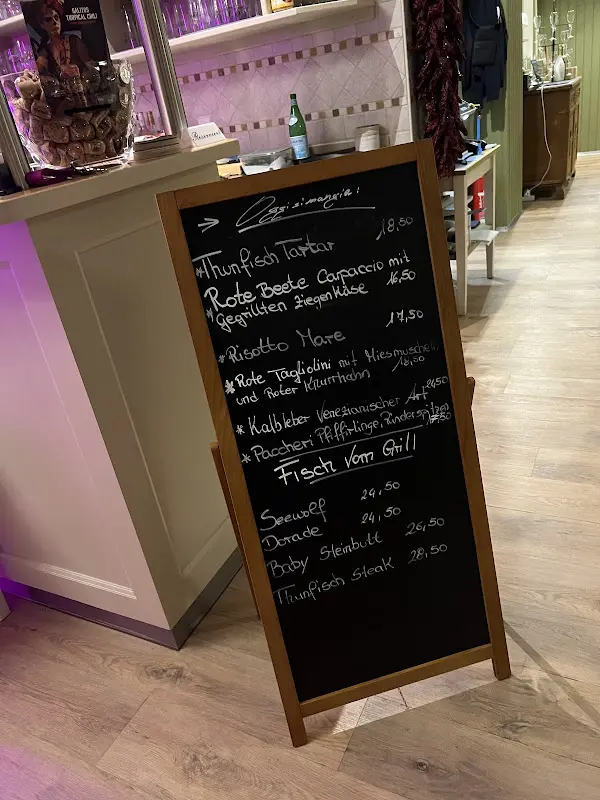 SALITOS
TROPICAL CHILI
Reserviert
Oggi si mangia:
*Thunfisch Tartar 18,50
*Rote Beete Carpaccio mit
gegrillten Ziegenkäse 16,50
*Risotto Mare 17,50
*Rote Tagliolini mit Miesmuscheln
und Roter Knurrhahn 18,50
*Kalbleber Venezianischer Art 24,50
*Paccheri Pfiffirlinge, Rinderspitzen
Fisch Vom Grill
Seewolf 24,50
Dorade 24,50
Baby Steinbutt 26,50
Thunfisch Steak 28,50